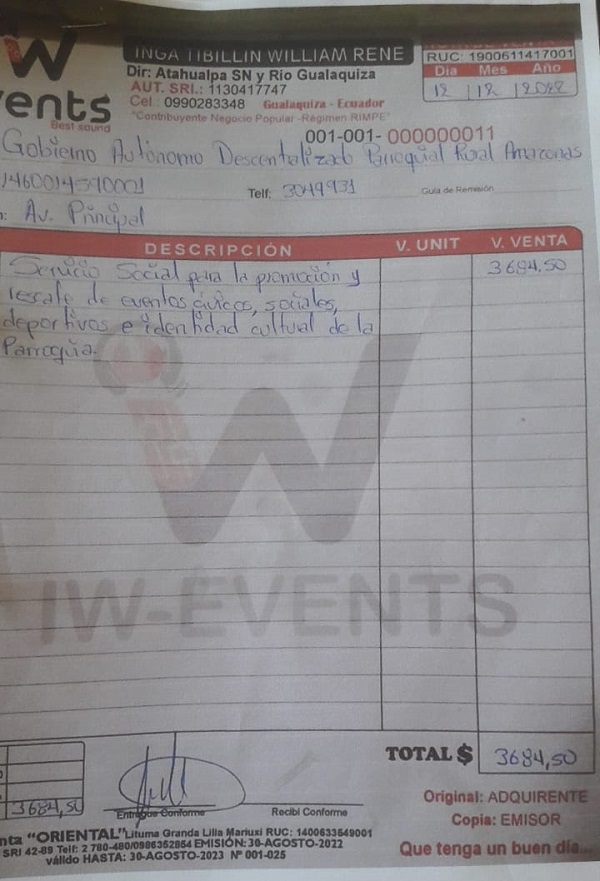 W
INGA TIBILLIN WILLIAM RENE
RUC: 1900611417001
Dir: Atahualpa SN y Rio Gualaquiza
Dia Mes Año
AUT. SRI.: 1130417747
12 | 12 | 2022
ents
Cel.: 0990283348 Gualaquiza - Ecuador
Best sound
"Contribuyente Negocio Popular -Régimen RIMPE"
001-001- 000000011
Gobierno Autónomo Descentralizado Parroquial Rural Amazonas
1460014590001 Telf: 3049931 Guía de Remisión
n: Av. Principal
DESCRIPCIÓN V. UNIT V. VENTA
Servicio Social para la promoción y 3684.50
rescate de eventos cívicos, sociales,
deportivos e identidad cultural de la
Parroquia.
IW-EVENTS
TOTAL $ 3684,50
3684,50
Entregue Conforme Recibi Conforme
Original: ADQUIRENTE
Copia: EMISOR
nta "ORIENTAL" Lituma Granda Lilia Mariuxi RUC: 1400633549001
SRI 42-89 Telf: 2 780-480/0986352854 EMISIÓN: 30-AGOSTO-2022
válido HASTA: 30-AGOSTO-2023 Nº 001-025
Que tenga un buen día...